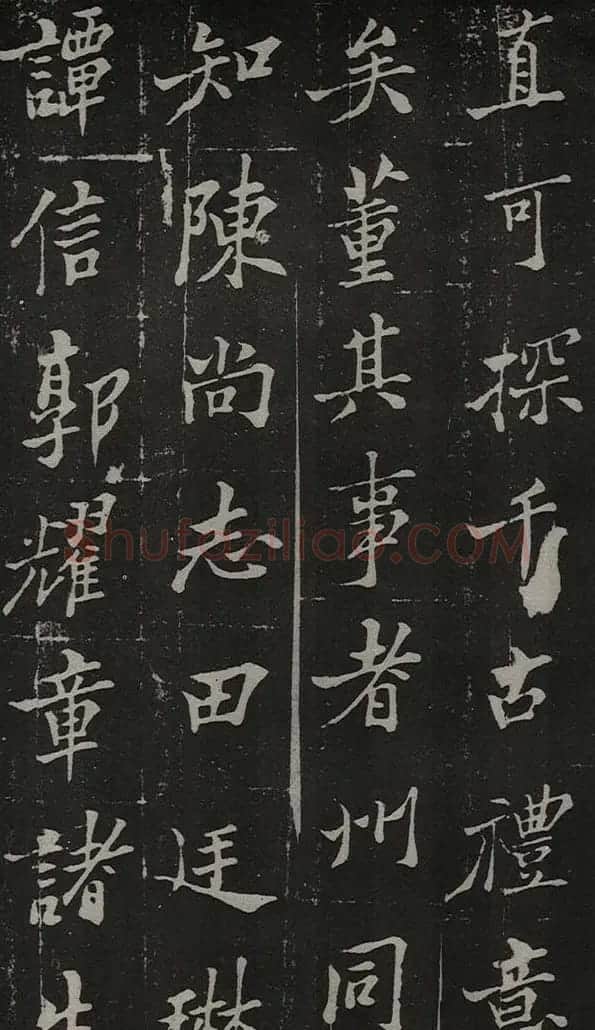 直可探千古禮意
矣董其事者州同
知陳尚志田廷琳
譚信郭耀章諸生
Shufaziliao.COM